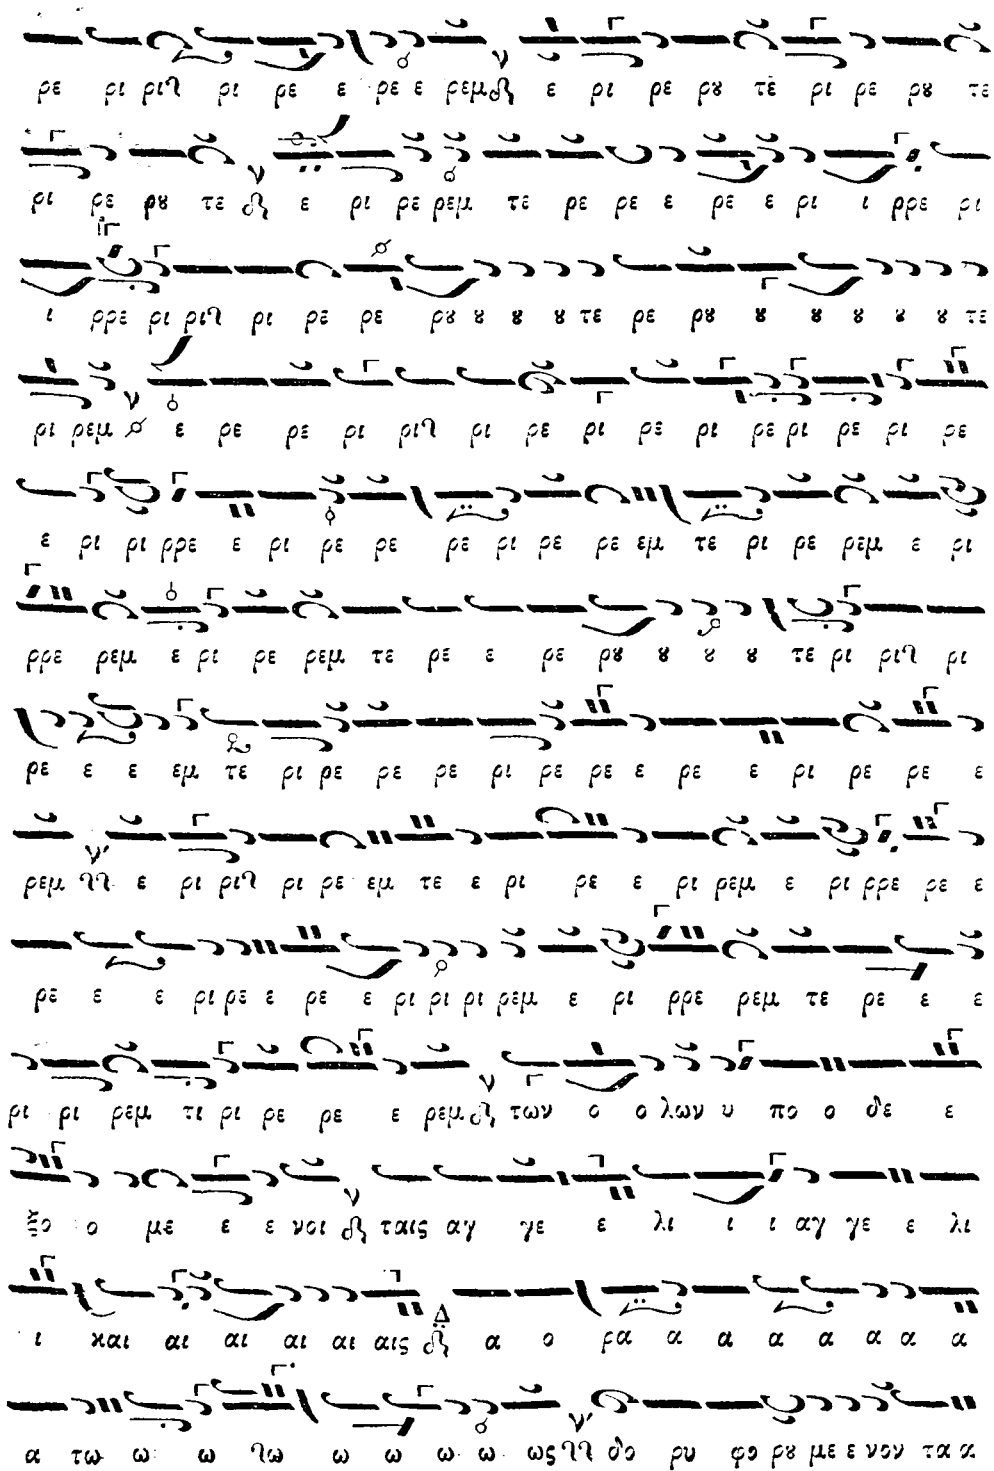 ρε ρι ριϞ ρι ρε ε ρε ε ρεμ ε ρι ρε ρȣ τε ρι ρε ρȣ τε
ρι ρε ρȣ τε ε ρι ρε ρεμ τε ρε ρε ε ρε ε ρι ι ρρε ρι
ι ρρε ρι ριϞ ρι ρε ρε ρȣ ȣ ȣ ȣ τε ρε ρȣ ȣ ȣ ȣ ȣ ȣ τε
ρι ρεμ ε ρε ρε ρι ριϞ ρι ρε ρι ρε ρι ρε ρι ρε ρι ρε
ε ρι ρι ρρε ε ρι ρε ρε ρε ρι ρε ρε εμ τε ρι ρε ρεμ ε ρι
ρρε ρεμ ε ρι ρε ρεμ τε ρε ε ρε ρȣ ȣ ȣ ȣ τε ρι ριϞ ρι
ρε ε ε εμ τε ρι ρε ρε ρε ρι ρε ρε ε ρε ε ρι ρε ρε ε
ρεμ ε ρι ριϞ ρι ρε εμ τε ε ρι ρε ε ρι ρεμ ε ρι ρρε ρε ε
ρε ε ε ρι ρε ε ρε ε ρι ρι ρι ρεμ ε ρι ρρε ρεμ τε ρε ε ε
ρι ρι ρεμ τι ρι ρε ρε ε ρεμ των ο ο λων υ πο ο δε ε
ξο ο με ε ε νοι ταις αγ γε ε λι ι ι αγ γε ε λι
ι και αι αι αι αι αις α ο ρα α α α α α α α
α τω ω ω Ϟω ω ω ω ω ως δο ρυ φο ρȣ με ε νον τα α